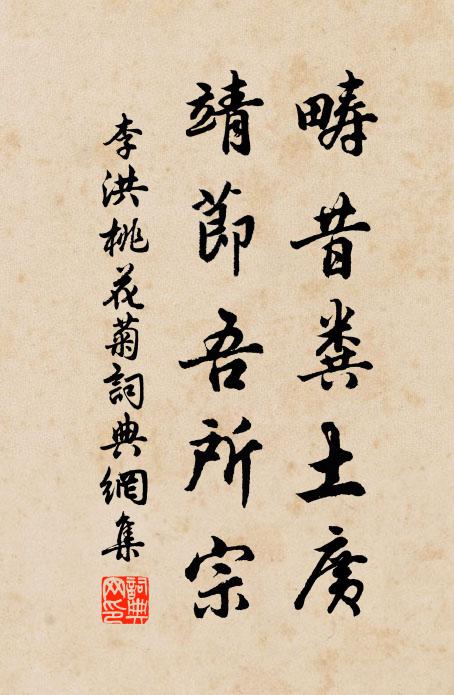 疇昔糞土廣
靖節吾所宗
李洪桃花菊詞典網集
詞典網印